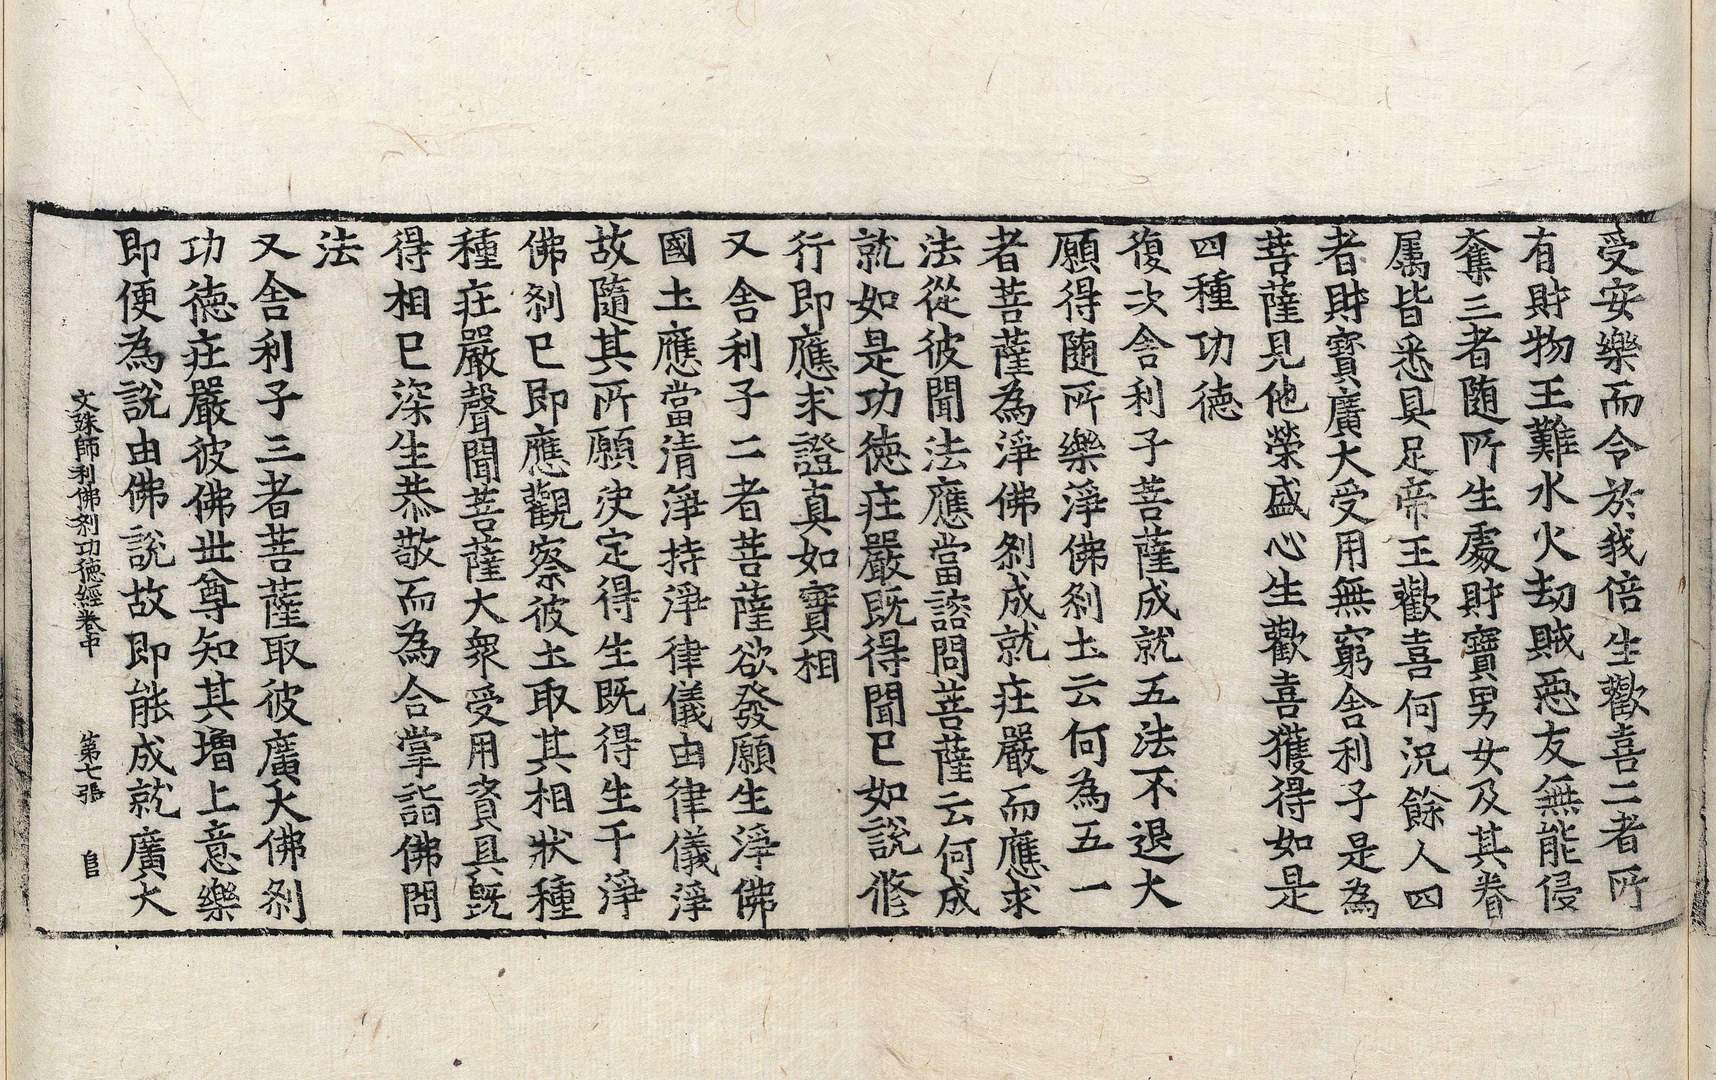 受安樂而令於我倍生歡喜二者所
有財物王難水火劫賊惡友無能侵
奪三者随所生處財寶男女及其眷
属皆悉具足帝王歡喜何況餘人四
者財寶廣大受用無窮舍利子是為
菩薩見他榮盛心生歡喜獲得如是
四種功德
復次舍利子菩薩成就五法不退大
願得随所樂淨佛刹土云何為五一
者菩薩為淨佛刹成就庄嚴而應求
法從彼聞法應當諮問菩薩云何成
就如是功徳庄嚴既得聞已如說修
行即應求證真如實相
又舍利子二者菩薩欲發願生淨佛
國土應當清淨持淨律儀由律儀淨
故隨其所願決定得生既得生于淨
佛刹已即應觀察彼土取其相狀種
種庄嚴聲聞菩薩大衆受用資具既
得相已深生恭敬而為合掌詣佛問
法
又舍利子三者菩薩取彼廣大佛刹
功徳庄嚴彼佛世尊知其增上意樂
即便為說由佛說故即能成就廣大
文殊師利佛刹功徳經卷中 第七張